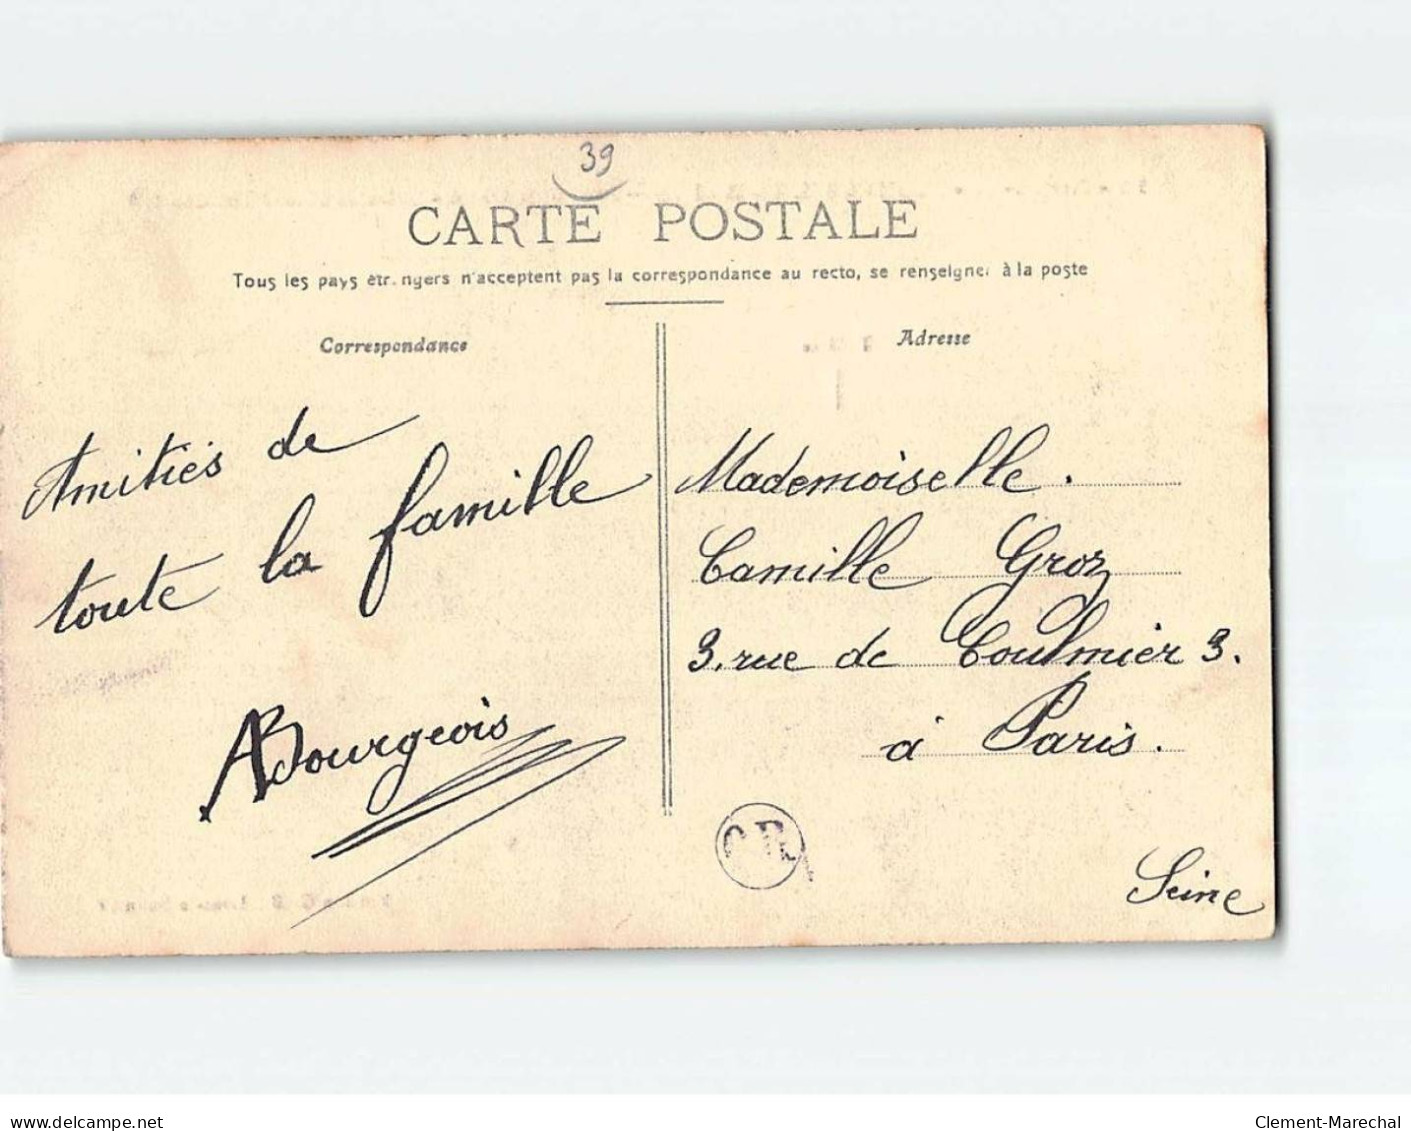 39
CARTE POSTALE
Tous les pays étrangers n'acceptent pas la correspondance au recto, se renseigner à la poste
Correspondance
Amitiés de
toute la famille
ABourgeois
Adresse
Mademoiselle.
Camille Groz
3. rue de Coulmier 3.
à Paris.
Seine
OR
www.delcampe.net
Clement-Marechal